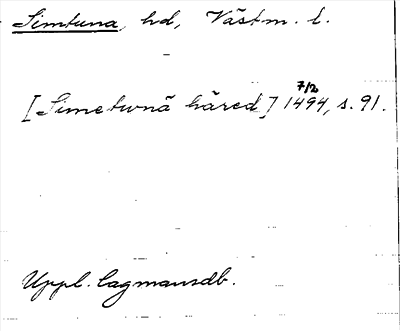 Simtuna, hd, Västm. l.
[Simetwnā hāred] 7/2 1494, s. 91.
Uppl. lagmansdb.